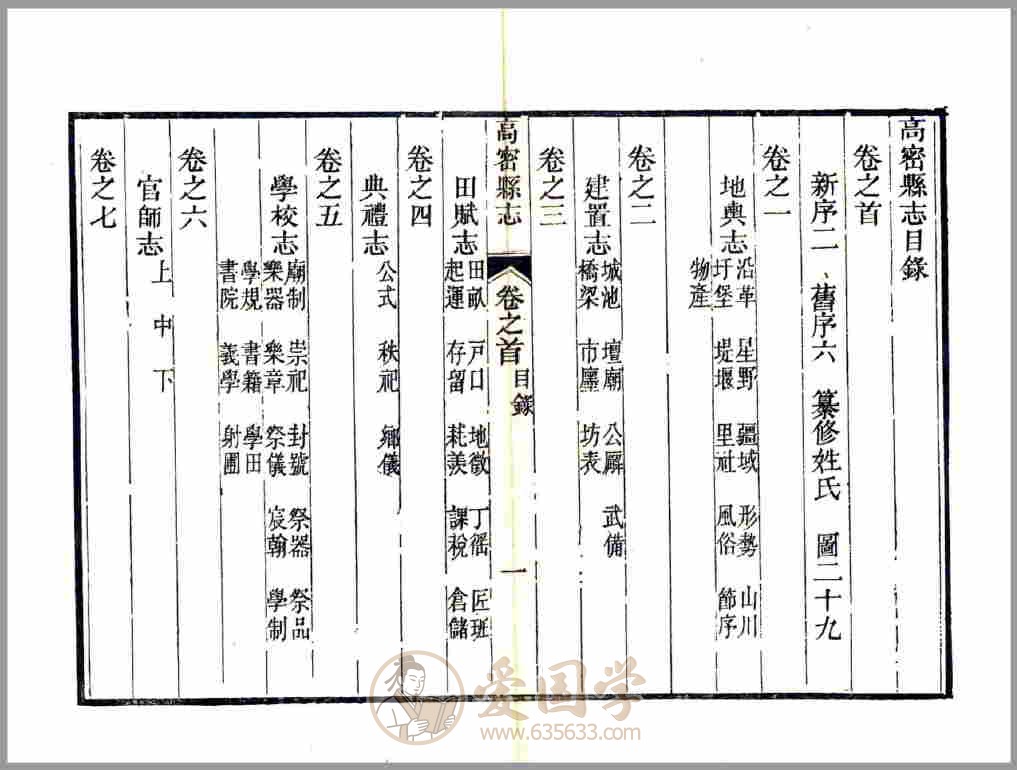 高密縣志目錄
卷之首
新序二、舊序六 纂修姓氏 圖二十九
卷之一
地輿志
沿革 星野 疆域 形勢 山川
圩堡 堤堰 里社 風俗 節序
物產
卷之二
建置志
城池 壇廟 公廨 武備
橋梁 市廛 坊表
卷之三
高密縣志 卷之首 目錄 一
田賦志
田畝 戸口 地徵 丁徭 匠班
起運 存留 耗羨 課稅 倉儲
卷之四
典禮志
公式 秩祀 鄉儀
卷之五
學校志
廟制 崇祀 封號 祭器 祭品
樂器 樂章 祭儀 宸翰 學制
學規 書籍 學田
書院 義學 射圃
卷之六
官師志
上 中 下
卷之七
爱国学
www.635633.com